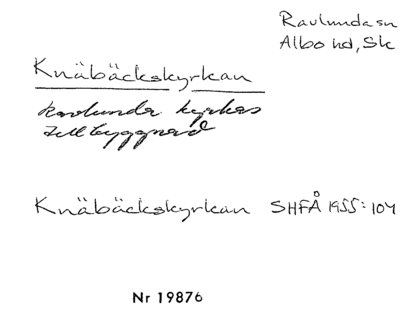 Ravlunda sn
Albo hd, Sk
Knäbäckskyrkan
Ravlunda kyrkas
tillbyggnad
Knäbäckskyrkan SHFÅ 1955:104
Nr 19876